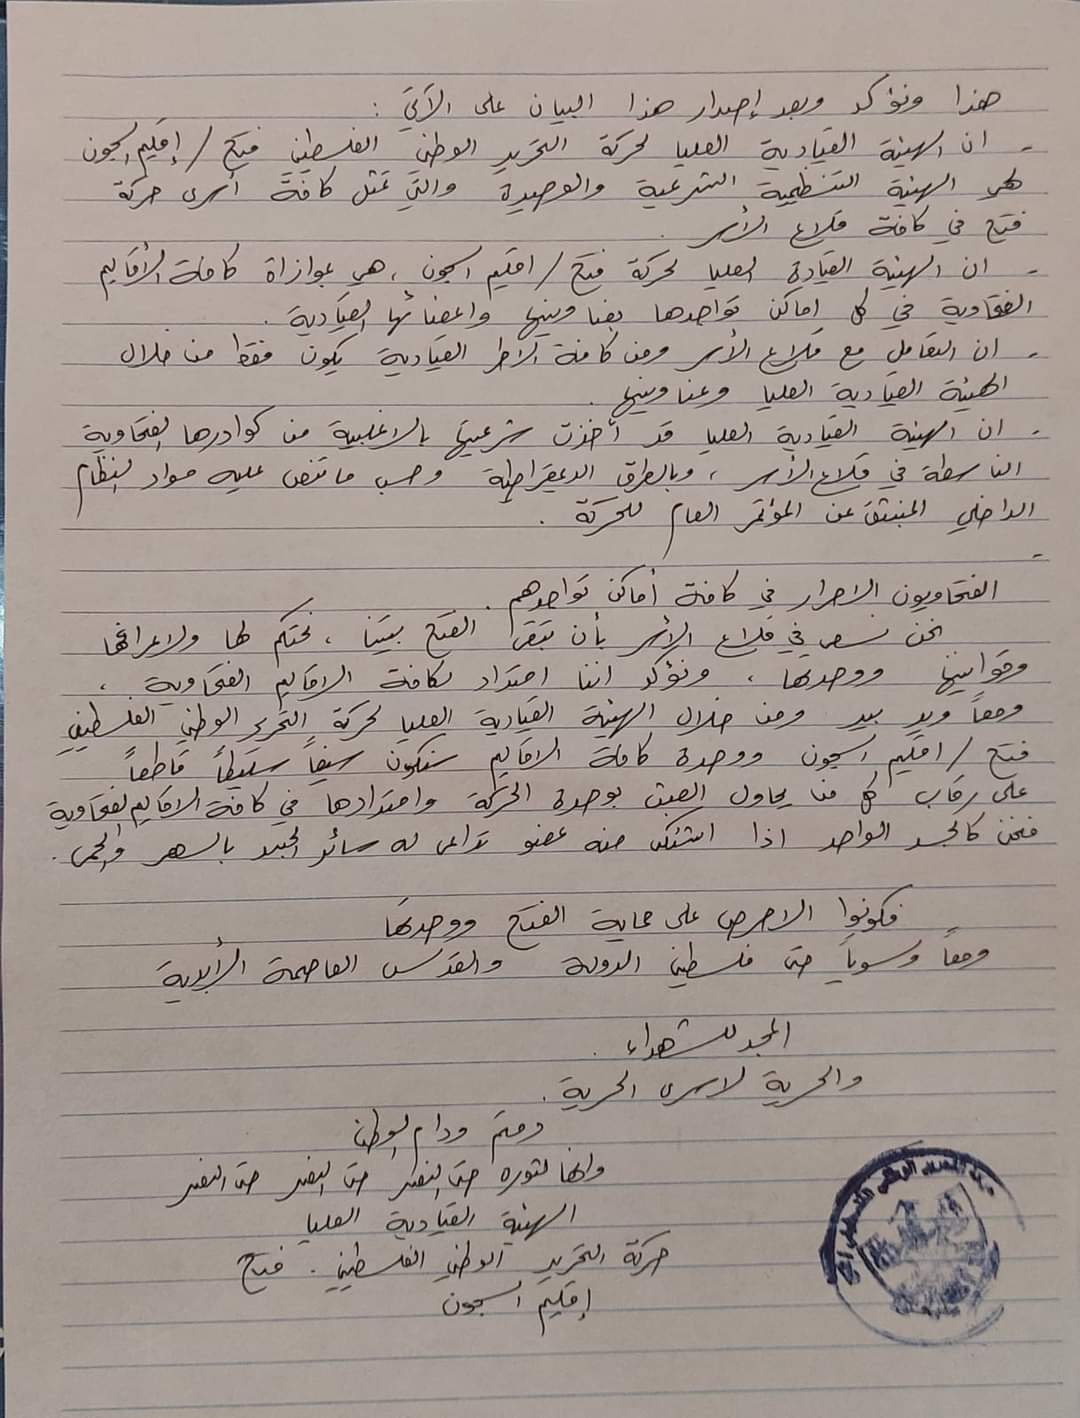 هذا ونؤكد وبعد إصدار هذا البيان على الآتي :
- ان الهيئة القيادية العليا لحركة التحرير الوطني الفلسطيني فتح / إقليم السجون
هي الهيئة التنظيمية الشرعية والوحيدة والتي تمثل كافة أسرى حركة
فتح في كافة قلاع الأسر .
- ان الهيئة القيادة العليا لحركة فتح / اقليم السجون ، هي بموازاة كافة الأقاليم
الفتحاوية في كل اماكن تواجدها بعناوينها واعضائها القيادية .
- ان التعامل مع قلاع الأسر ومن كافة الاطر القيادية يكون فقط من خلال
الهيئة القيادية العليا وعناوينها .
- ان الهيئة القيادية العليا قد أخذت شرعيتها بالاغلبية من كوادرها الفتحاوية
الناشطة في قلاع الأسر ، وبالطرق الديمقراطية وحسب ما تنص عليه مواد النظام
الداخلي المنبثق عن المؤتمر العام للحركة .
-
الفتحاويون الاحرار في كافة أماكن تواجدهم .
نحن نسعى في قلاع الأسر بأن تبقى الفتح بيتنا ، نحتكم لها ولاعرافها
وقوانينها ووحدتها ، ونؤكد اننا امتداد لكافة الاقاليم الفتحاوية ،
ومعاً ويد بيد ومن خلال الهيئة القيادية العليا لحركة التحرير الوطني الفلسطيني
فتح / اقليم السجون ووحدة كافة الاقاليم سنكون سيفاً سليطاً قاطعاً
على رقاب كل من يحاول العبث بوحدة الحركة وامتدادها في كافة الاقاليم الفتحاوية
فنحن كالجسد الواحد اذا اشتكى منه عضو تداعى له سائر الجسد بالسهر والحمى .
فكونوا الاحرص على حماية الفتح ووحدتها
ومعاً وسوياً حتى فلسطين الدولة والقدس العاصمة الأبدية
المجد للشهداء .
والحرية لاسرى الحرية .
ودمتم ودام الوطن
وانها لثورة حتى النصر حتى النصر حتى النصر
الهيئة القيادية العليا
حركة التحرير الوطني الفلسطيني . فتح
إقليم السجون
حركة التحرير الوطني الفلسطيني فتح